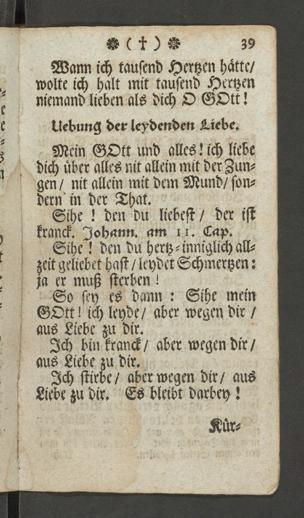 ❁ ( ✝ ) ❁ 39
Wann ich tausend Hertzen hätte/
wolte ich halt mit tausend Hertzen
niemand lieben als dich O GOtt!
Uebung der leydenden Liebe.
Mein GOtt und alles! ich liebe
dich über alles nit allein mit der Zun-
gen/ nit allein mit dem Mund/ son-
dern in der That.
Sihe! den du liebest/ der ist
kranck. Johann. am 11. Cap.
Sihe! den du hertz-inniglich all-
zeit geliebet hast/ leydet Schmertzen:
ja er muß sterben!
So sey es dann: Sihe mein
GOtt! ich leyde/ aber wegen dir/
aus Liebe zu dir.
Ich bin kranck/ aber wegen dir/
aus Liebe zu dir.
Ich stirbe/ aber wegen dir/ aus
Liebe zu dir. Es bleibt darbey!
Kür-